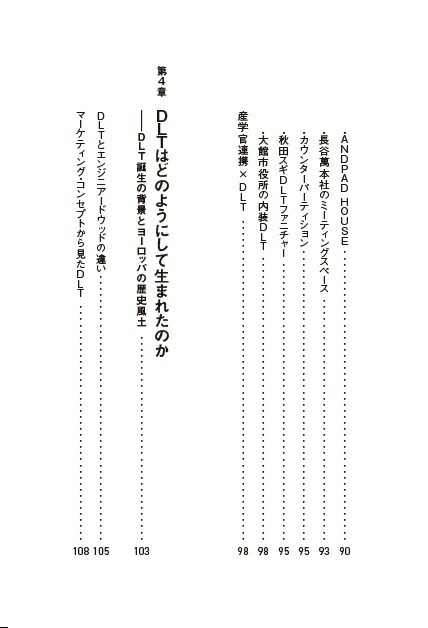 ・ANDPAD HOUSE 90
・長谷萬本社のミーティングスペース 93
・カウンターパーティション 95
・秋田スギDLTファニチャー 95
・大館市役所の内装DLT 98
産学官連携×DLT 98
第4章 DLTはどのようにして生まれたのか
——DLT誕生の背景とヨーロッパの歴史風土 103
DLTとエンジニアードウッドの違い 105
マーケティング・コンセプトから見たDLT 108